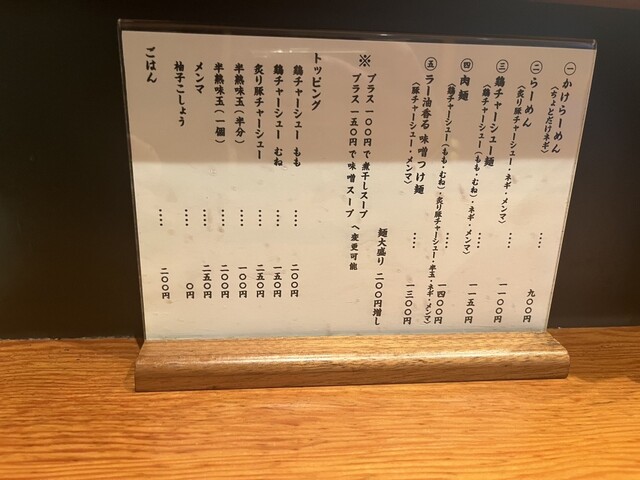 ㊀ かけらーめん ‥‥ 九〇〇円
(ちょとだけネギ)
㊁ らーめん ‥‥ 一一〇〇円
(炙り豚チャーシュー・ネギ・メンマ)
㊂ 鶏チャーシュー麺 ‥‥ 一一五〇円
(鶏チャーシュー(もも・むね)・ネギ・メンマ)
㊃ 肉麺 ‥‥ 一四〇〇円
(鶏チャーシュー(もも・むね)・炙り豚チャーシュー・半玉・ネギ・メンマ)
㊄ ラー油香る 味噌つけ麺 ‥‥ 一三〇〇円
(豚チャーシュー・メンマ)
麺大盛り 二〇〇円増し
※ プラス一〇〇円で煮干しスープ
プラス一五〇円で味噌スープ へ変更可能
トッピング
鶏チャーシュー もも ‥‥ 二〇〇円
鶏チャーシュー むね ‥‥ 一五〇円
炙り豚チャーシュー ‥‥ 二五〇円
半熟味玉(半分) ‥‥ 一〇〇円
半熟味玉(一個) ‥‥ 二〇〇円
メンマ ‥‥ 二五〇円
柚子こしょう ‥‥ 〇円
ごはん ‥‥ 二〇〇円